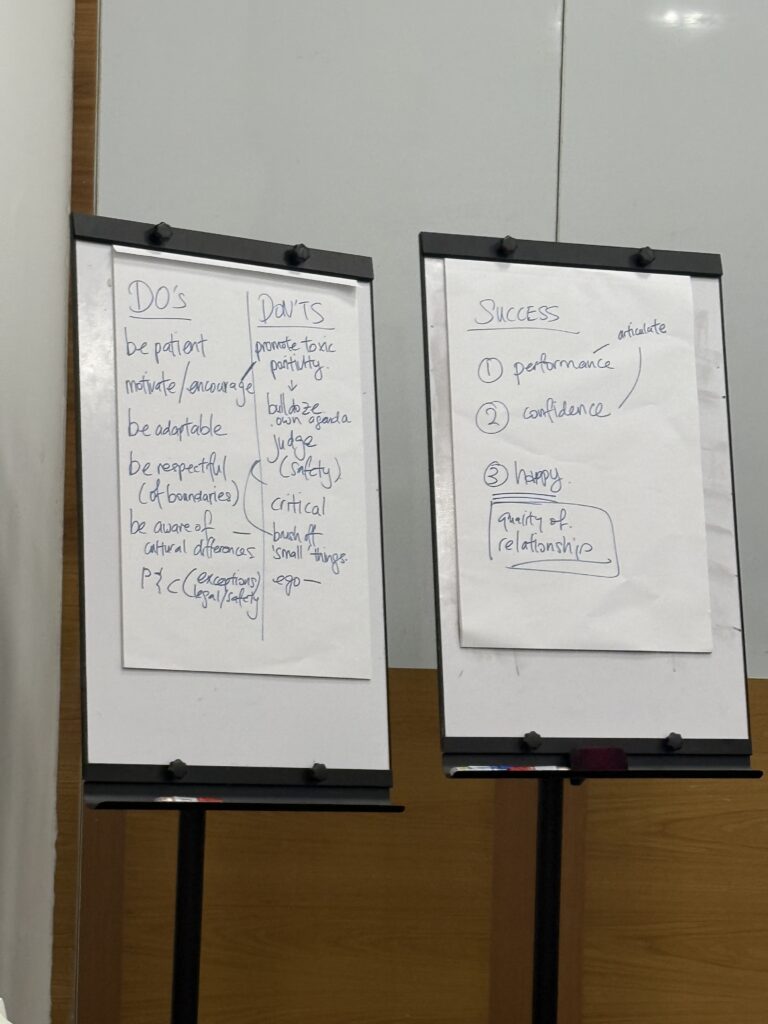 DO's
be patient
motivate/encourage
be adaptable
be respectful
(of boundaries)
be aware of —
cultural differences
P & C (exceptions)
legal/safety
DON'TS
promote toxic
positivity.
↓
bulldoze
own agenda
judge
(safety)
critical
brush off
'small' things.
ego —
SUCCESS
articulate
① performance
② confidence
③ happy.
quality of
relationship